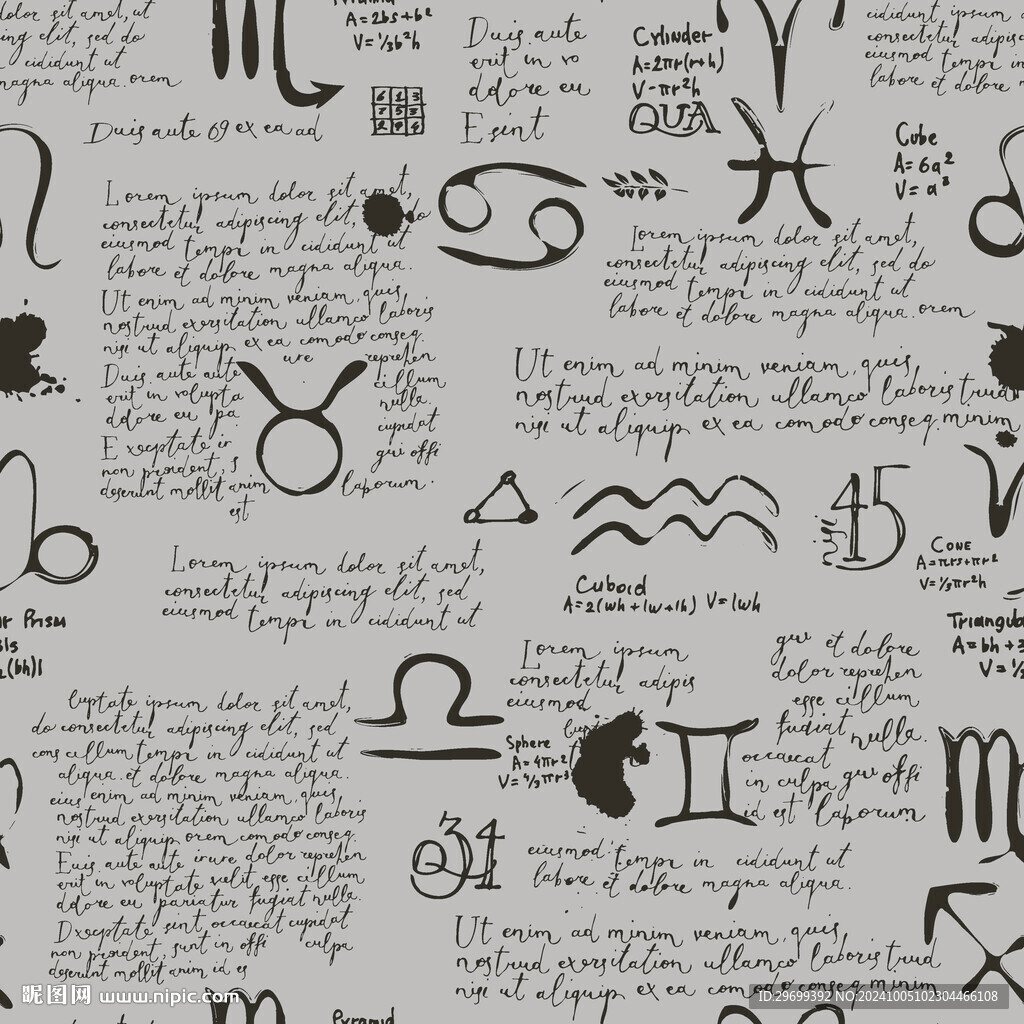 dolor sit amet, ut
ing elit, sed do
cididunt ut
magna aliqua. orem
A=2bs+b²
V=⅓b²h
Duis aute
erit in vo
dolore eu
E sint
Cylinder
A=2πr(r+h)
V-πr²h
QUA
cididunt ipsum
consectetur adipisc
eiusmod tempi in
labore et dolore
Duis aute 69 ex ea ad
Cube
A=6a²
V=a³
Lorem ipsum dolor sit amet,
consectetur adipiscing elit, do
eiusmod tempi in cididunt ut
labore et dolore magna aliqua.
Ut enim ad minim veniam, quis
nostrud exersitation ullamco laboris
nisi ut aliquip ex ea comodo conseq.
ure reprehen
Duis aute aute cillum
erit in volupta nulla.
dolore eu pa cupidat
E xceptate ir qui offi
non proident, s
deserunt mollit anim laborum.
est
Lorem ipsum dolor sit amet,
consectetur adipiscing elit, sed do
eiusmod tempi in cididunt ut
labore et dolore magna aliqua. orem
Ut enim ad minim veniam, quis
nostrud exersitation ullamco laboris trud
nisi ut aliquip ex ea comodo conseq. minim
45
Cone
A=πrs+πr²
V=⅓πr²h
Lorem ipsum dolor sit amet,
consectetur adipiscing elit, sed
eiusmod tempi in cididunt ut
Cuboid
A=2(wh+lw+lh) V=lwh
ar Prism
Triangula
A=bh+
Lorem ipsum
consectetur adipis
eiusmod
qui et dolore
dolor reprehen
esse cillum
fugiat nulla.
occaecat
in culpa qui offi
id est laborum
Sphere
A=4πr²
V=⁴/₃πr³
luptate ipsum dolor sit amet,
do consectetur adipiscing elit, sed
cons cillum tempi in cididunt ut
aliqua. et dolore magna aliqua.
eius enim ad minim veniam, quis
nostrud exersitation ullamco laboris
nisi ut aliquip orem comodo conseq.
Euis aute aute irure dolor reprehen
erit in voluptate velit esse cillum
dolore eu pariatur fugiat nulla.
Dxceptate sint occaecat cupidat
non proident, sunt in offi culpa
deserunt mollit anim id es
34
eiusmod tempi in cididunt ut
labore et dolore magna aliqua.
Ut enim ad minim veniam, quis
nostrud exersitation ullamco laboris trud
nisi ut aliquip ex ea comodo conseq minim
Pyramid
昵图网 www.nipic.com
ID:29699392 NO:20241005102304466108